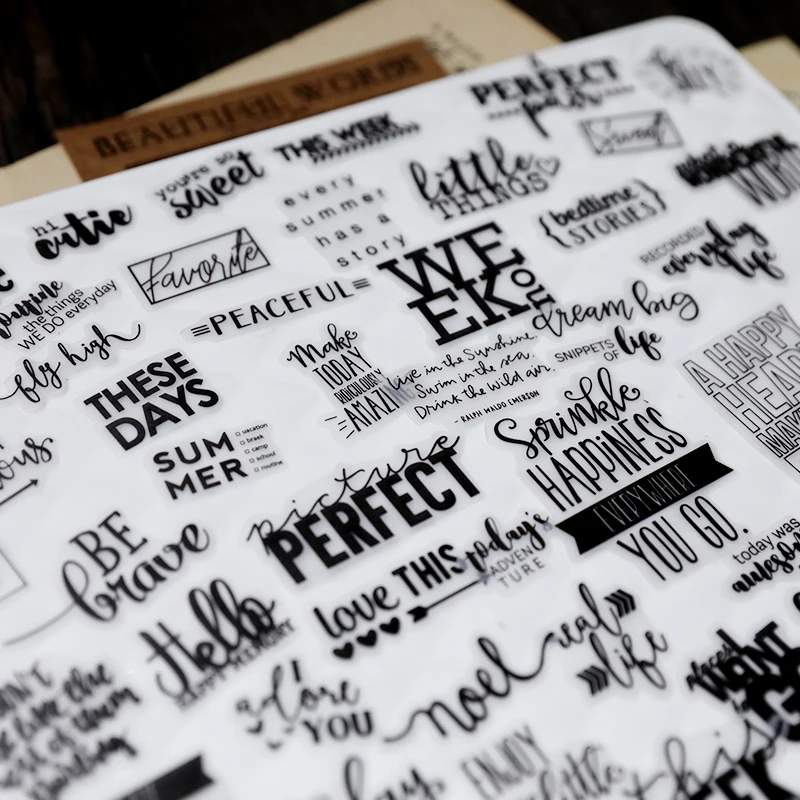 BEAUTIFUL WORDS
PERFECT
THIS WEEK
you're so
sweet
little
THINGS
hi
cutie
every
summer
has a
story
{bedtime
STORIES}
RECORDED
everyday
life
Favorite
WE
EK
PEACEFUL
dream big
the things
WE DO everyday
fly high
Make
TODAY
RIDICULOUSLY
AMAZI
live in the Sunshine.
Swim in the sea.
Drink the wild air.
- RALPH WALDO EMERSON
SNIPPETS
OF life
A HAPPY
THESE
DAYS
SUM
MER
vacation
break
camp
school
routine
Sprinkle
HAPPINESS
EVERYWHERE
YOU GO.
picture
PERFECT
BE
brave
love THIS
today's
ADVEN
TURE
today was
awesome
Hello
real
life
noel
I love
YOU
ENJOY
little
this